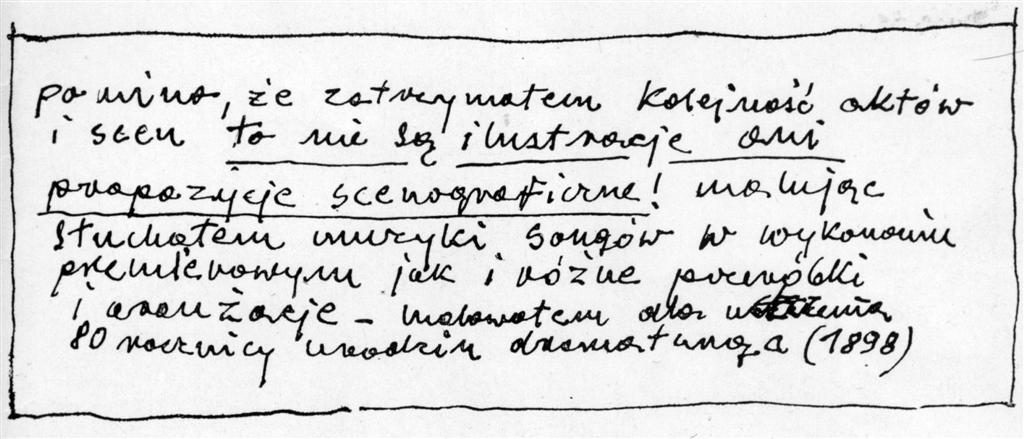 pomimo, że zatrzymałem kolejność aktów
i scen to nie są ilustracje ani
propozycje scenograficzne! malując
słuchałem muzyki songów w wykonaniu
premierowym jak i różne przeróbki
i aranżacje – malowałem dla
80 rocznicy urodzin dramaturga (1898)